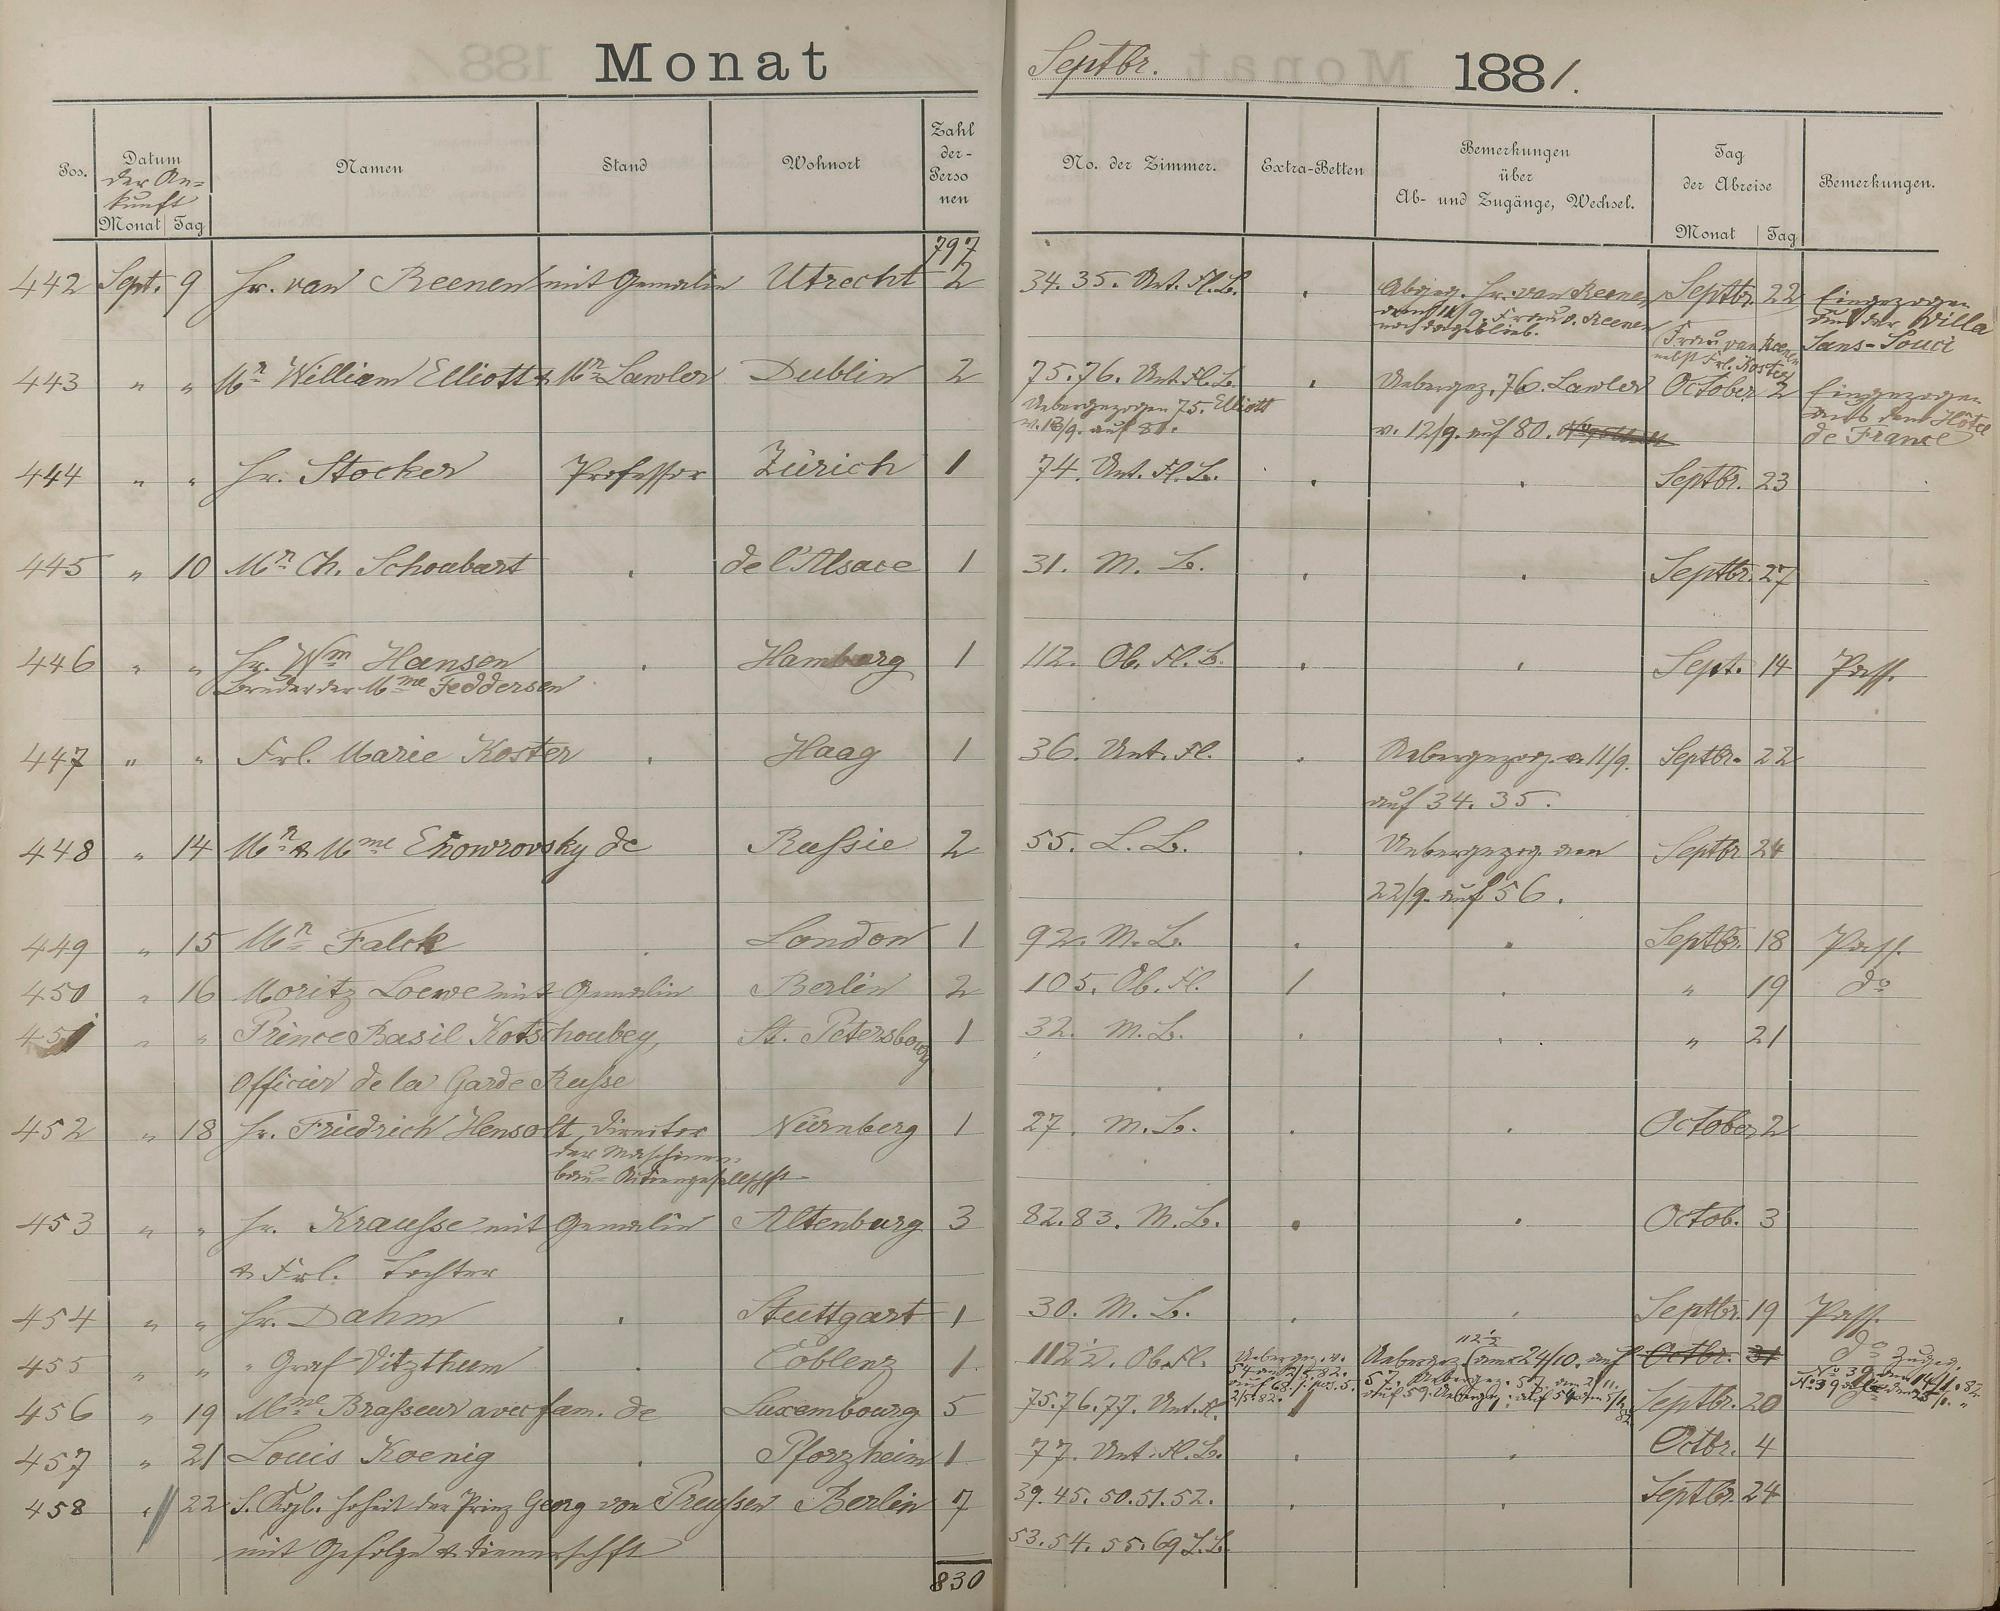 Monat Septbr. 1881.
Pos. Datum der Ankunft Monat Tag Namen Stand Wohnort Zahl der Personen No. der Zimmer. Extra-Betten Bemerkungen über Ab- und Zugänge, Wechsel. Tag der Abreise Monat Tag Bemerkungen.
797
442 Sept. 9 Hr. van Reenen mit Gemalin Utrecht 2 34. 35. Unt. Fl. L. Abger. Hr. van Reenen Septbr. 22 Eingezogen
11/9. Frau v. Reenen aus der Villa
noch dageblieb. Frau van Reenen Sans-Souci
nebst Frl. Koster
443 " " Mr. William Elliott & Mr. Lawler Dublin 2 75. 76. Unt. Fl. L. Uebergez. 76. Lawler October 2 Eingezogen
Uebergezogen 75. Elliott aus dem Hôtel
v. 13/9. auf 81. v. 12/9. auf 80. de France
444 " " Hr. Stocker Professor Zürich 1 74. Unt. Fl. L. Septbr. 23
445 " 10 Mr. Ch. Schoubart de l'Alsace 1 31. M. L. Septbr. 27
446 " " Hr. Wm Hansen Hamburg 1 112. Ob. Fl. L. Sept. 14 Pass.
Bruder der Mme Feddersen
447 " " Frl. Marie Koster Haag 1 36. Unt. Fl. Uebergezog. a 11/9. Septbr. 22
auf 34. 35.
448 " 14 Mr. & Mme Chowrovsky de Russie 2 55. L. L. Uebergezog. am Septbr 24
22/9. auf 56.
449 " 15 Mr. Falck London 1 92. M. L. Septbr. 18 Pass.
450 " 16 Moritz Loewe mit Gemalin Berlin 2 105. Ob. Fl. 1 " 19 do
451 " " Prince Basil Kotschoubey, St. Petersbourg 1 32. M. L. " 21
Officier de la Garde Russe
452 " 18 Hr. Friedrich Hensolt, Director Nürnberg 1 27. M. L. October 2
der Maschinen-
bau-Actiengesellschft
453 " " Hr. Krausse mit Gemalin Altenburg 3 82. 83. M. L. Octob. 3
& Frl. Tochter
454 " " Hr. Dahm Stuttgart 1 30. M. L. Septbr. 19 Pass.
455 " " " Graf Vitzthum Coblenz 1 112½. Ob. Fl. Uebergez. 112½ am 24/10. auf Octbr. 31 do
57. Uebergez. 57. den 2/11.
auf 59.
456 " 19 Mme Brasseur avec fam. de Luxembourg 5 75. 76. 77. Unt. Fl. 1 Septbr. 20
457 " 21 Louis Koenig Pforzheim 1 77. Unt. Fl. L. Octbr. 4
458 " 22 S. Kgl. Hoheit der Prinz Georg von Preussen Berlin 7 39. 45. 50. 51. 52. Septbr. 24
mit Gefolge & Dienerschft 53. 54. 55. 69 L. L.
830